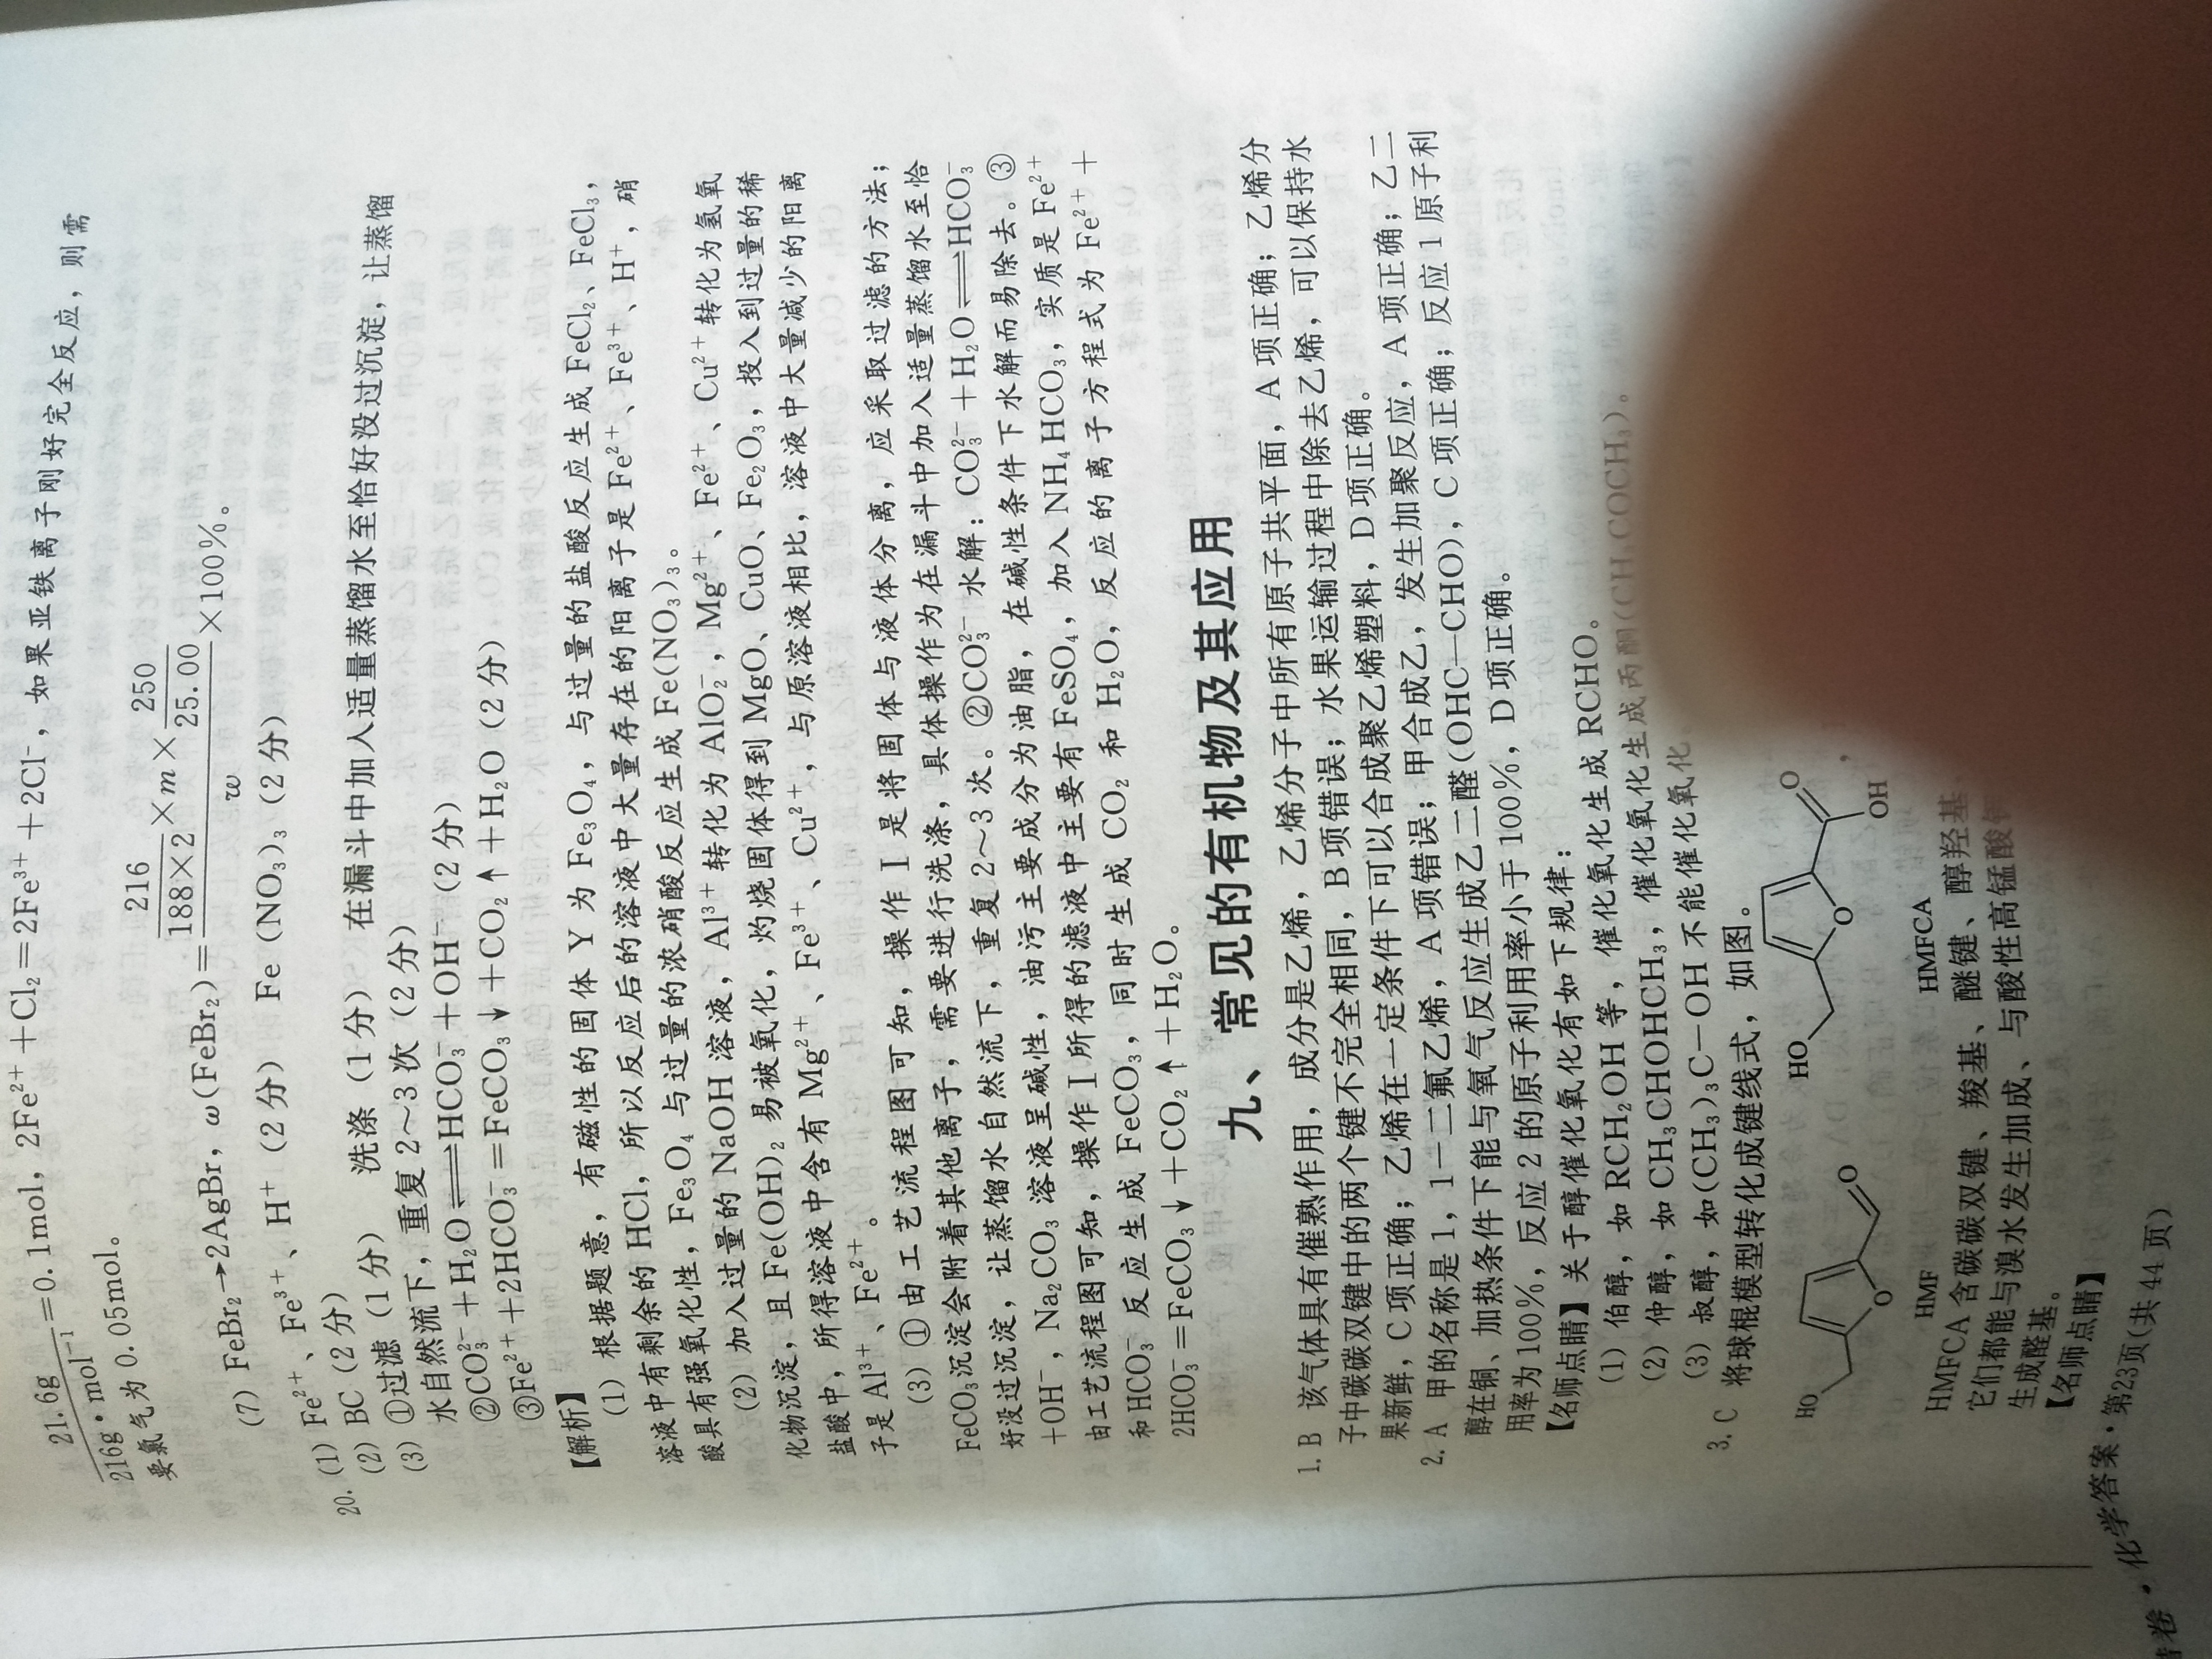 21.6g/216g·mol⁻¹=0.1mol，2Fe²⁺+Cl₂=2Fe³⁺+2Cl⁻，如果亚铁离子刚好完全反应，则需
要氯气为 0.05mol。
（7）FeBr₂→2AgBr，ω(FeBr₂)=(216/(188×2)×m×250/25.00)/w×100%。
20.（1）Fe²⁺、Fe³⁺、H⁺（2分） Fe(NO₃)₃（2分）
（2）BC（2分）
（3）①过滤（1分） 洗涤（1分） 在漏斗中加入适量蒸馏水至恰好没过沉淀，让蒸馏
水自然流下，重复2～3次（2分）
②CO₃²⁻+H₂O⇌HCO₃⁻+OH⁻（2分）
③Fe²⁺+2HCO₃⁻=FeCO₃↓+CO₂↑+H₂O（2分）
【解析】
（1）根据题意，有磁性的固体 Y 为 Fe₃O₄，与过量的盐酸反应生成 FeCl₂、FeCl₃，
溶液中有剩余的 HCl，所以反应后的溶液中大量存在的阳离子是 Fe²⁺、Fe³⁺、H⁺，硝
酸具有强氧化性，Fe₃O₄ 与过量的浓硝酸反应生成 Fe(NO₃)₃。
（2）加入过量的 NaOH 溶液，Al³⁺ 转化为 AlO₂⁻，Mg²⁺、Fe²⁺、Cu²⁺ 转化为氢氧
化物沉淀，且 Fe(OH)₂ 易被氧化，灼烧固体得到 MgO、CuO、Fe₂O₃，投入到过量的稀
盐酸中，所得溶液中含有 Mg²⁺、Fe³⁺、Cu²⁺，与原溶液相比，溶液中大量减少的阳离
子是 Al³⁺、Fe²⁺。
（3）①由工艺流程图可知，操作Ⅰ是将固体与液体分离，应采取过滤的方法；
FeCO₃沉淀会附着其他离子，需要进行洗涤，具体操作为在漏斗中加入适量蒸馏水至恰
好没过沉淀，让蒸馏水自然流下，重复2～3次。②CO₃²⁻水解：CO₃²⁻+H₂O⇌HCO₃⁻
+OH⁻，Na₂CO₃ 溶液呈碱性，油污主要成分为油脂，在碱性条件下水解而易除去。③
由工艺流程图可知，操作Ⅰ所得的滤液中主要有 FeSO₄，加入 NH₄HCO₃，实质是 Fe²⁺
和 HCO₃⁻ 反应生成 FeCO₃，同时生成 CO₂ 和 H₂O，反应的离子方程式为 Fe²⁺+
2HCO₃⁻=FeCO₃↓+CO₂↑+H₂O。
九、常见的有机物及其应用
1. B 该气体具有催熟作用，成分是乙烯，乙烯分子中所有原子共平面，A 项正确；乙烯分
子中碳碳双键中的两个键不完全相同，B 项错误；水果运输过程中除去乙烯，可以保持水
果新鲜，C 项正确；乙烯在一定条件下可以合成聚乙烯塑料，D 项正确。
2. A 甲的名称是 1，1－二氟乙烯，A 项错误；甲合成乙，发生加聚反应，A 项正确；乙二
醇在铜、加热条件下能与氧气反应生成乙二醛(OHC—CHO)，C 项正确；反应 1 原子利
用率为 100%，反应 2 的原子利用率小于 100%，D 项正确。
【名师点睛】关于醇催化氧化有如下规律：
（1）伯醇，如 RCH₂OH 等，催化氧化生成 RCHO。
（2）仲醇，如 CH₃CHOHCH₃，催化氧化生成丙酮(CH₃COCH₃)。
（3）叔醇，如(CH₃)₃C－OH 不能催化氧化
3. C 将球棍模型转化成键线式，如图。
HO O O HO O O OH
HMF HMFCA
HMFCA 含碳碳双键、羧基、醚键、醇羟基
它们都能与溴水发生加成、与酸性高锰酸
生成醛基。
【名师点睛】
化学答案·第23页(共 44 页)